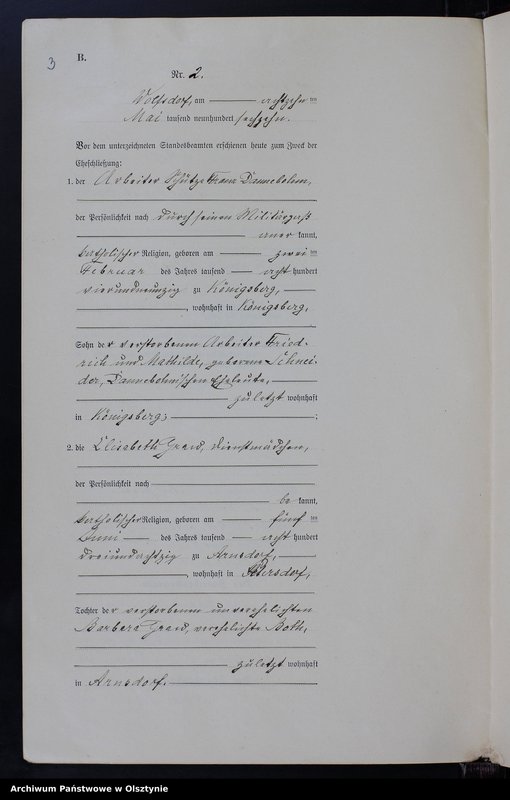 3
B.
Nr. 2.
Wolfsdorf, am achtzehnten
Mai tausend neunhundert sechzehn.
Vor dem unterzeichneten Standesbeamten erschienen heute zum Zweck der
Eheschließung:
1. der Arbeiter Schütze Franz Dannebohm,
der Persönlichkeit nach durch seinen Militärpaß
aner kannt,
katholischer Religion, geboren am zweiten
Februar des Jahres tausend acht hundert
vierundneunzig zu Königsberg,
, wohnhaft in Königsberg,
Sohn der verstorbenen Arbeiter Fried-
rich und Mathilde, geborene Schnei-
der, Dannebohmschen Eheleute,
zuletzt wohnhaft
in Königsberg;
2. die Elisabeth Graw, Dienstmädchen,
der Persönlichkeit nach
be kannt,
katholischer Religion, geboren am fünften
Juni des Jahres tausend acht hundert
dreiundachtzig zu Arnsdorf,
, wohnhaft in
Tochter der verstorbenen unverehelichten
Barbara Graw, verehelichte Both,
zuletzt wohnhaft
in Arnsdorf.
Archiwum Państwowe w Olsztynie